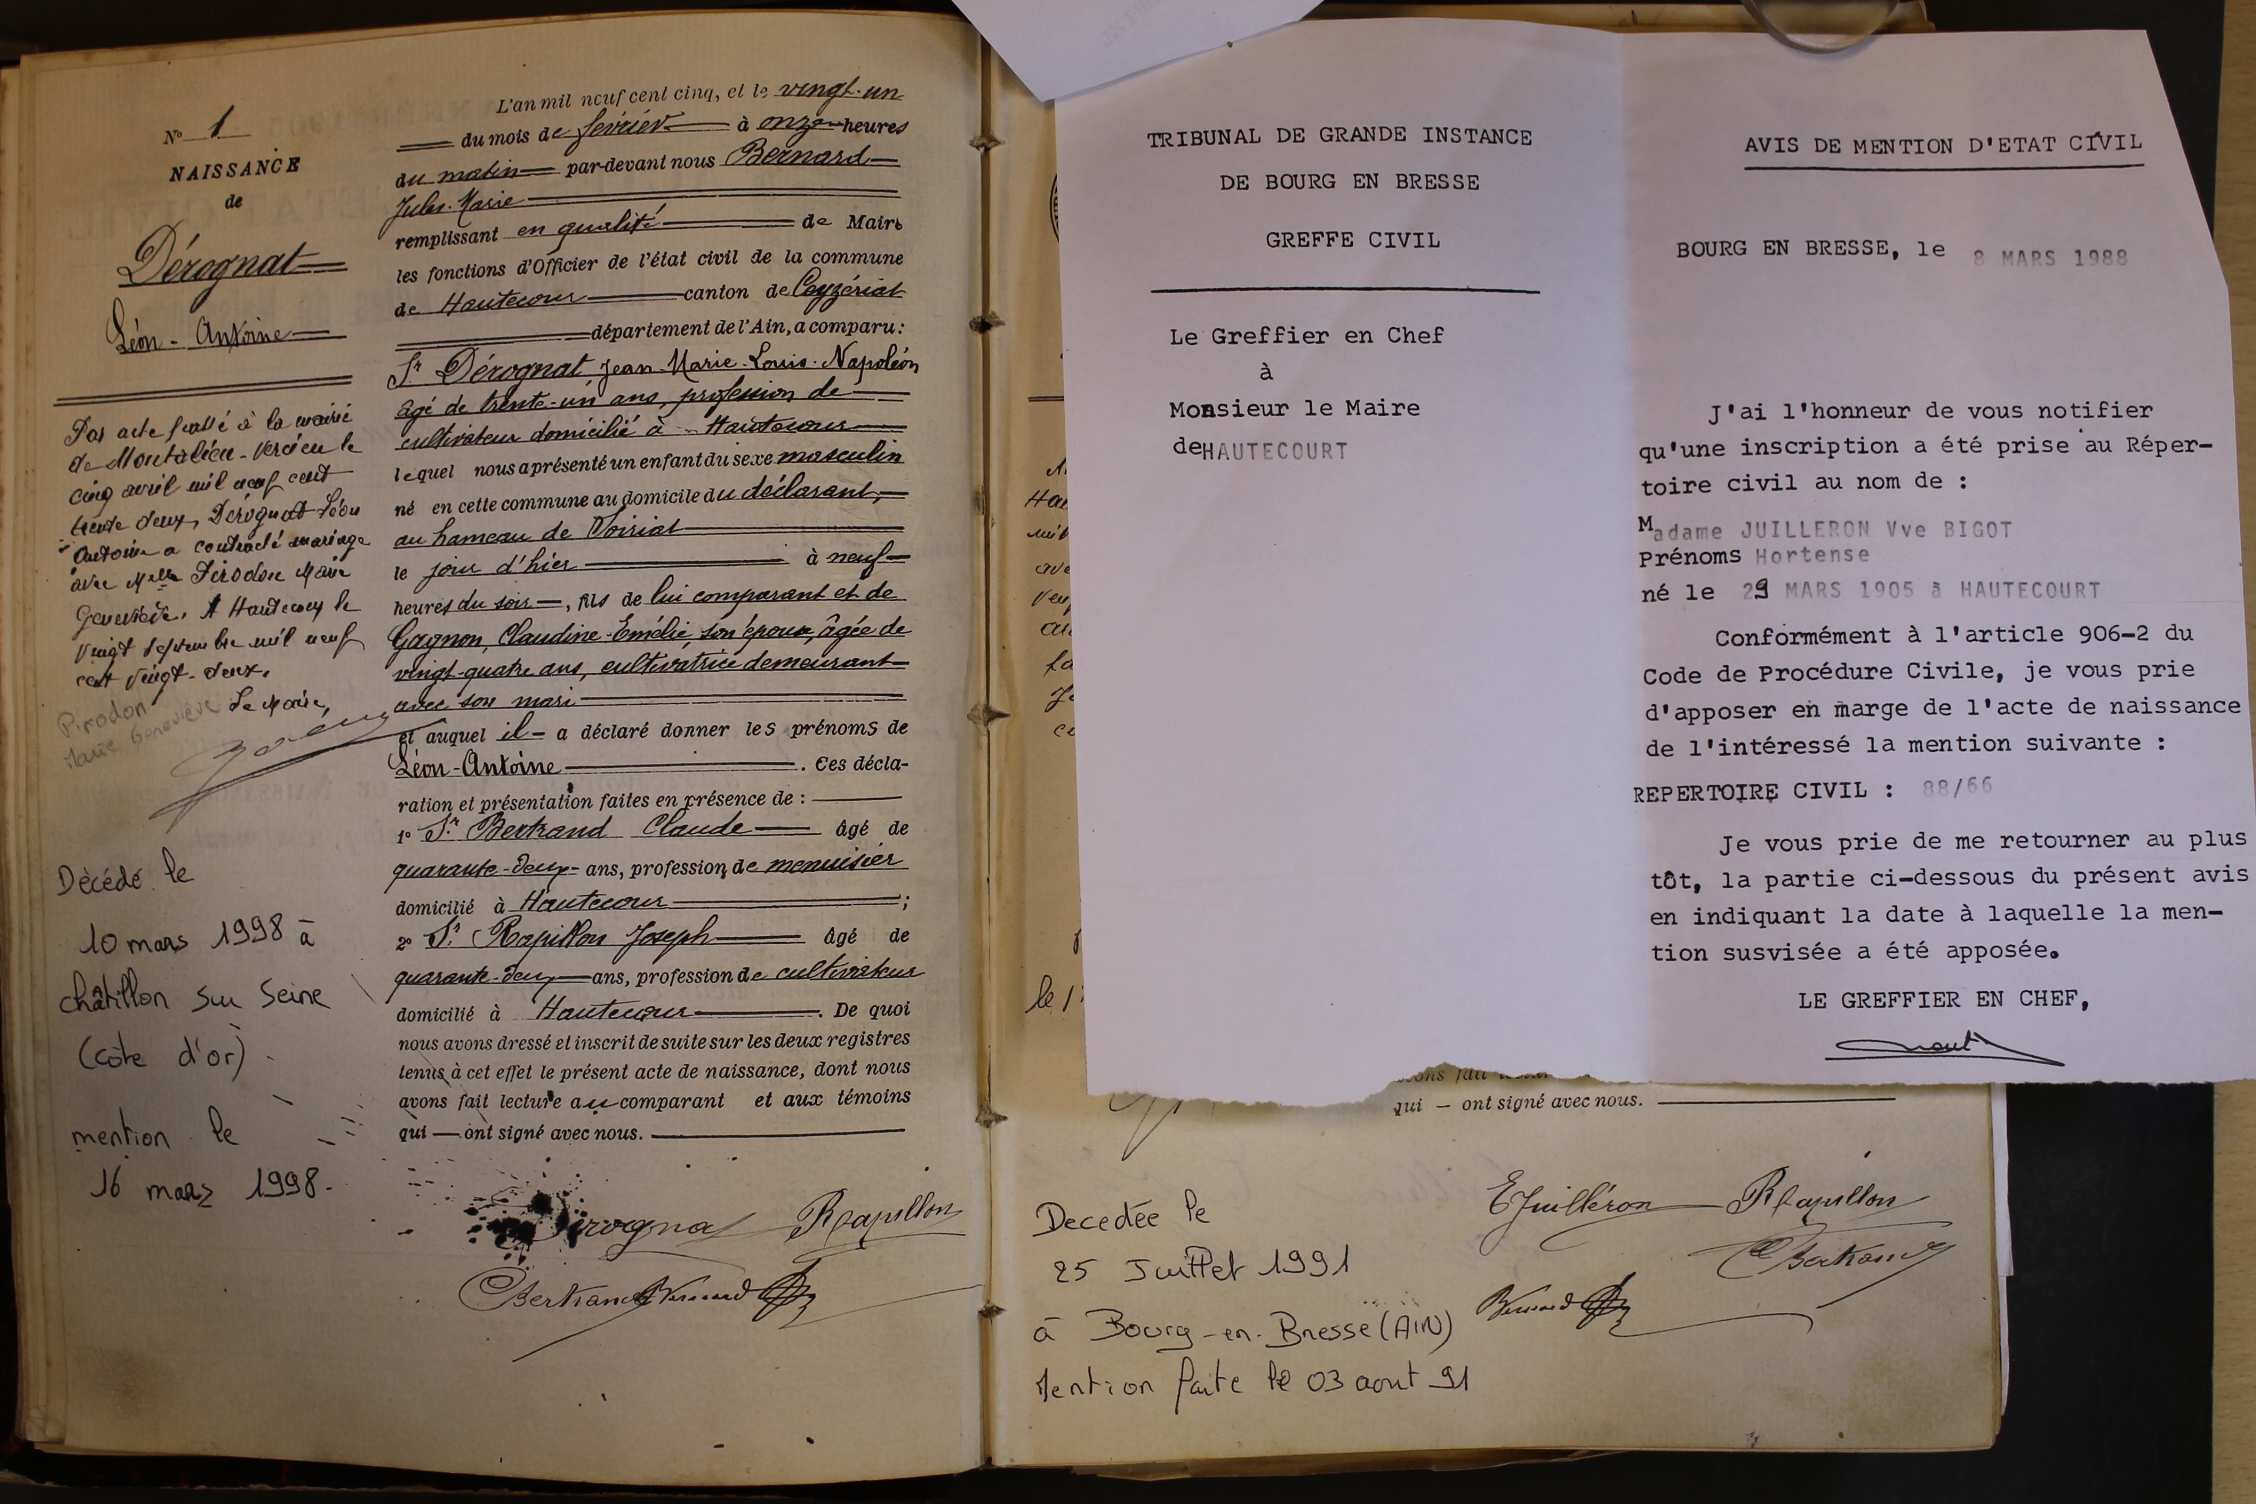 N° 1
NAISSANCE
de
Dérognat
Léon-Antoine
Par acte passé à la mairie
de Montalieu-Vercieu le
cinq avril mil neuf cent
trente deux, Dérognat Léon
Antoine a contracté mariage
avec Melle Pirodon Marie
Geneviève. A Hautecour le
vingt septembre mil neuf
cent vingt-deux.
Le Maire,
Pirodon
Marie Geneviève
Décédé le
10 mars 1998 à
châtillon sur Seine
(côte d'or).
mention le
16 mars 1998.
L'an mil neuf cent cinq, et le vingt-un
du mois de février à onze heures
du matin par-devant nous Bernard
Jules-Marie
remplissant en qualité de Maire
les fonctions d'Officier de l'état civil de la commune
de Hautecour canton de Ceyzériat
département de l'Ain, a comparu :
Sr Dérognat Jean-Marie-Louis-Napoléon
âgé de trente-un ans, profession de
cultivateur domicilié à Hautecour
lequel nous a présenté un enfant du sexe masculin
né en cette commune au domicile du déclarant,
au hameau de Voiriat
le jour d'hier à neuf
heures du soir, fils de lui comparant et de
Gagnon, Claudine-Emélie, son épouse, âgée de
vingt-quatre ans, cultivatrice demeurant
avec son mari
et auquel il a déclaré donner les prénoms de
Léon-Antoine. Ces décla-
ration et présentation faites en présence de :
1° Sr Bertrand Claude âgé de
quarante-deux ans, profession de menuisier
domicilié à Hautecour ;
2° Sr Rapillon Joseph âgé de
quarante-deux ans, profession de cultivateur
domicilié à Hautecour. De quoi
nous avons dressé et inscrit de suite sur les deux registres
tenus à cet effet le présent acte de naissance, dont nous
avons fait lecture au comparant et aux témoins
qui — ont signé avec nous.
Dérognat Rapillon
CBertrand Bernard
TRIBUNAL DE GRANDE INSTANCE
DE BOURG EN BRESSE
GREFFE CIVIL
Le Greffier en Chef
à
Monsieur le Maire
de HAUTECOURT
AVIS DE MENTION D'ETAT CIVIL
BOURG EN BRESSE, le 8 MARS 1988
J'ai l'honneur de vous notifier
qu'une inscription a été prise au Réper-
toire civil au nom de :
Madame JUILLERON Vve BIGOT
Prénoms Hortense
né le 29 MARS 1905 à HAUTECOURT
Conformément à l'article 906-2 du
Code de Procédure Civile, je vous prie
d'apposer en marge de l'acte de naissance
de l'intéressé la mention suivante :
REPERTOIRE CIVIL : 88/66
Je vous prie de me retourner au plus
tôt, la partie ci-dessous du présent avis
en indiquant la date à laquelle la men-
tion susvisée a été apposée.
LE GREFFIER EN CHEF,
qui — ont signé avec nous.
EJuilléron Rapillon
CBertrand
Bernard
Decedée le
25 Juillet 1991
à Bourg-en-Bresse (AIN)
Mention faite le 03 aout 91